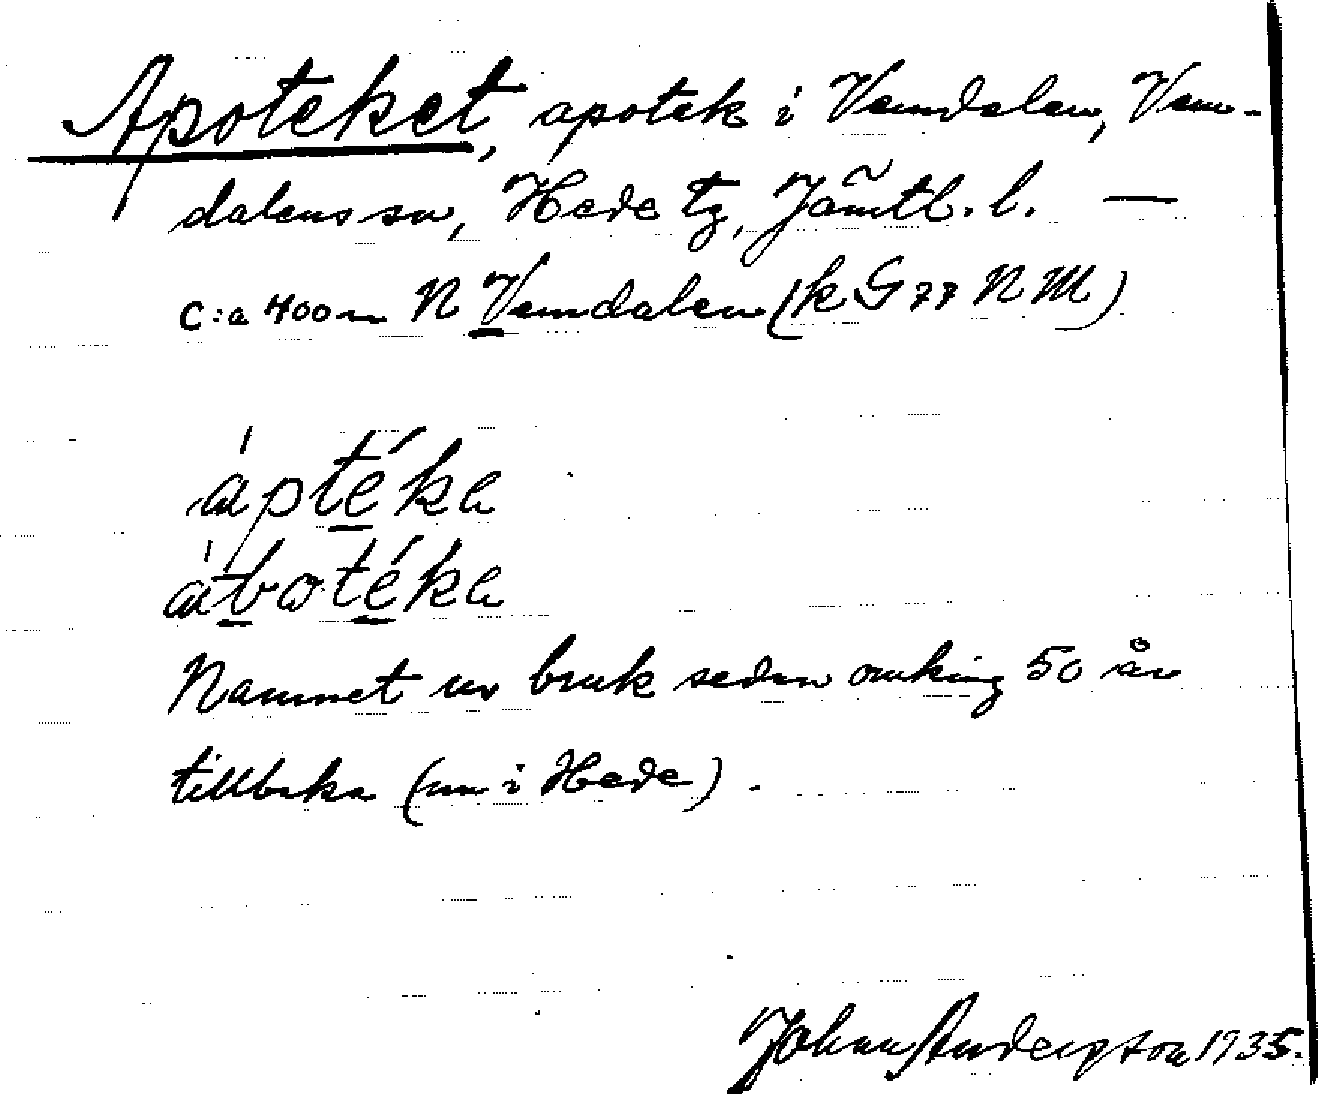 Apoteket, apotek i Vemdalen, Vem-
dalens sn, Hede tg, Jämtl. l. —
c:a 400 m N Vemdalen (k G 77 N M)
áptéka
ábotéka
Namnet ur bruk sedan omkring 50 år
tillbaka (nu i Hede).
Johan Anderson 1935.